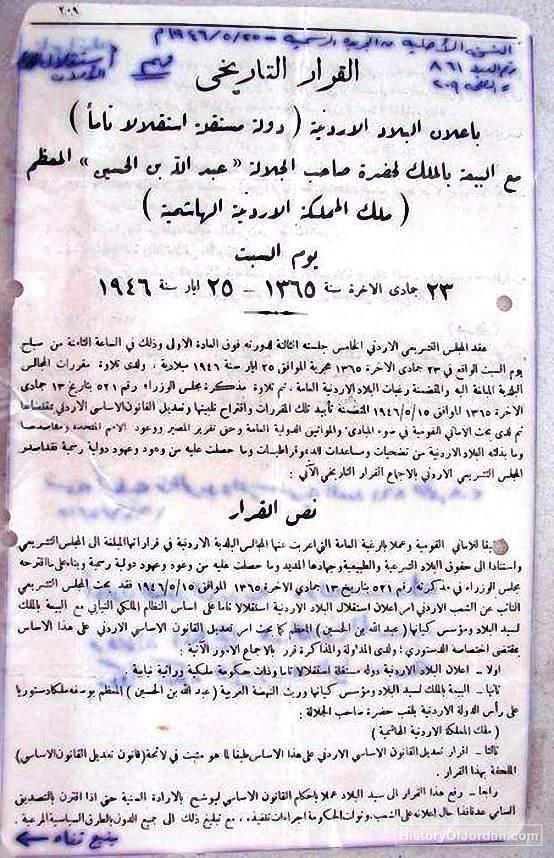 ٢٠٩
النسخة الأصلية من الجريدة الرسمية - ٢٥/٥/١٩٤٦م
رقم العدد ٨٦١
ص ٢٠٩
استقلال
الأردن
القرار التاريخي
باعلان البلاد الاردنية ( دولة مستقلة استقلالا تاماً )
مع البيعة بالملك لحضرة صاحب الجلالة « عبد الله بن الحسين » المعظم
( ملك المملكة الاردنية الهاشمية )
يوم السبت
٢٣ جمادى الاخرة سنة ١٣٦٥ – ٢٥ ايار سنة ١٩٤٦
عقد المجلس التشريعي الاردني الخامس جلسته الثالثة لدورته فوق العادة الاولى وذلك في الساعة الثامنة من صباح
يوم السبت الواقع في ٢٣ جمادى الاخرة ١٣٦٥ هجرية الموافق ٢٥ ايار سنة ١٩٤٦ ميلادية . ولدى تلاوة مقررات المجالس
البلدية المبلغة اليه والمتضمنة رغبات البلاد الاردنية العامة . ثم تلاوة مذكرة مجلس الوزراء رقم ٥٢١ بتاريخ ١٣ جمادى
الاخرة ١٣٦٥ الموافق ١٩٤٦/٥/١٥ المتضمنة تأييد تلك المقررات واقتراح تلبيتها وتعديل القانون الاساسي الاردني بمقتضاها
ثم لدى بحث الاماني القومية في ضوء المبادىء والمواثيق الدولية العامة وحق تقرير المصير ووعود الامم المتحدة ومقاصدها
وما بذلته البلاد الاردنية من تضحيات ومساعدات للديموقراطيات وما حصلت عليه من وعود وعهود دولية رسمية فقد اصدر
المجلس التشريعي الاردني بالاجماع القرار التاريخي الآتي :
نص القرار
تحقيقا للاماني القومية وعملا بالرغبة العامة التي اعربت عنها المجالس البلدية الاردنية في قراراتها المبلغة الى المجلس التشريعي
واستنادا الى حقوق البلاد الشرعية والطبيعية وجهادها المديد وما حصلت عليه من وعود وعهود دولية رسمية وبناء على ما اقترحه
مجلس الوزراء في مذكرته رقم ٥٢١ بتاريخ ١٣ جمادى الاخرة ١٣٦٥ الموافق ١٩٤٦/٥/١٥ فقد بحث المجلس التشريعي
النائب عن الشعب الاردني امر اعلان استقلال البلاد الاردنية استقلالا تاما على اساس النظام الملكي النيابي مع البيعة بالملك
لسيد البلاد ومؤسس كيانها ( عبد الله بن الحسين ) المعظم كما بحث امر تعديل القانون الاساسي الاردني على هذا الاساس
بمقتضى اختصاصه الدستوري ؛ ولدى المداولة والمذاكرة قرر بالاجماع الامور الآتية :
اولا - اعلان البلاد الاردنية دولة مستقلة استقلالا تاما وذات حكومة ملكية وراثية نيابية .
ثانيا - البيعة بالملك لسيد البلاد ومؤسس كيانها وريث النهضة العربية ( عبد الله بن الحسين ) المعظم بوصفه ملكا دستوريا
على رأس الدولة الاردنية بلقب حضرة صاحب الجلالة :
( ملك المملكة الاردنية الهاشمية )
ثالثا - اقرار تعديل القانون الاساسي الاردني على هذا الاساس طبقا لما هو مثبت في لائحة ( قانون تعديل القانون الاساسي )
الملحقة بهذا القرار .
رابعا - رفع هذا القرار الى سيد البلاد عملا باحكام القانون الاساسي ليوشح بالارادة السنية حتى اذا اقترن بالتصديق
السامي عد نافذا حال اعلانه على الشعب وتولت الحكومة اجراءات تنفيذه ، مع تبليغ ذلك الى جميع الدول بالطرق السياسية المرعية .
يتبع
HistoryOfJordan.com